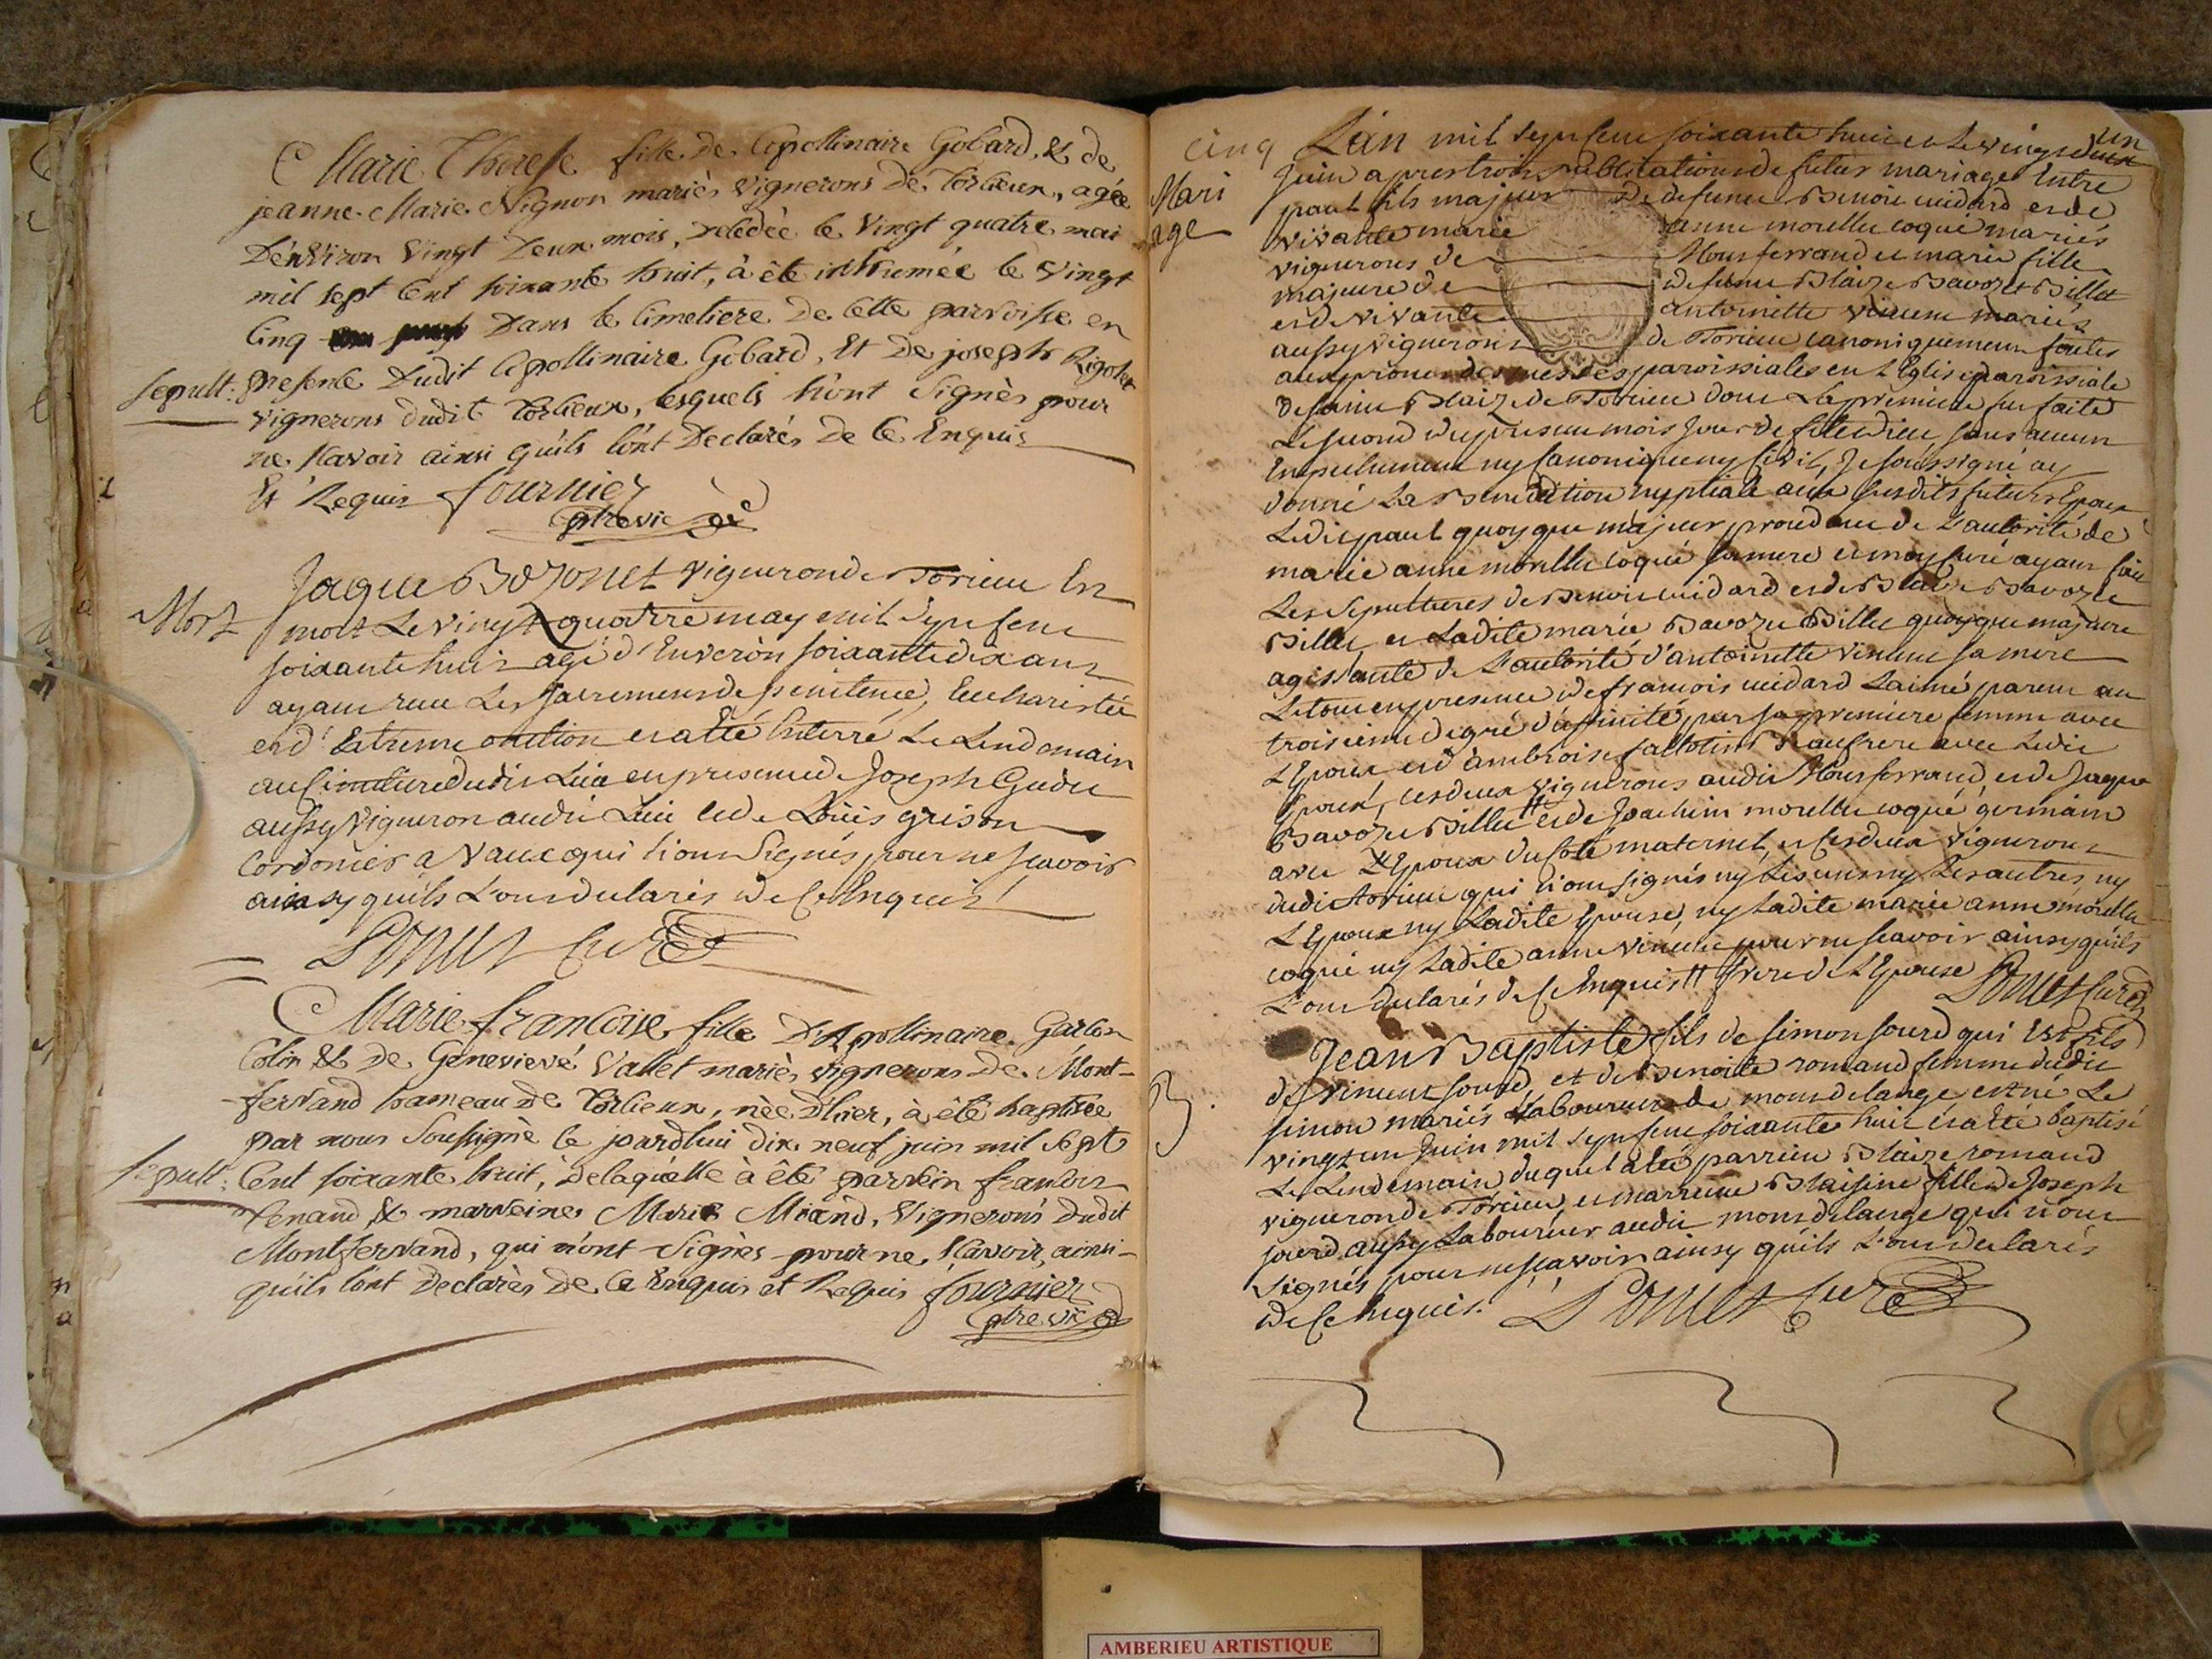 Marie Therese fille de Apollinaire Gobard, & de
jeanne Marie Nignon mariès vignerons de Torlieux, agée
D'environ vingt Deux mois, decedée le vingt quatre mai
mil sept Cent soixante huit, à été inhumée le vingt
Cinq Dans le Cimetiere de Cette parroisse en
sepult: presence Dudit Apollinaire Gobard, Et De joseph Rigolet
vignerons dudit Torlieux, lesquels n'ont signès pour
ne sçavoir ainsi qu'ils l'ont Declarés De Ce Enquis
Et Requis fournier
ptre vic
Mort
Jaque Bozonet vigneron de Torieu Est
mort Le vingt quatre may mil sept cent
soixante huit agé d'Enveron soixante dix ans
ayant reçu Les sacremens de penitence, Eucharistie
et d'Extreme onction et atté Enterré Le Lendemain
au Cimetiere dudit Lieu en presence de Joseph
aussy vigneron audit Lieu et de Loüis grison
Cordonier a Vaux qui n'ont signés pour ne scavoir
ainsy quils L'ont declarés de Ce Enquis
Curé
Marie francoise fille D'Apollinaire Garbin
Colin & de Genevieve Vallet mariès vignerons de Mont-
ferrand hameau De Torlieux, née d'hier, à été baptisée
par nous soussigné le jourdhui dix neuf juin mil sept
sepult: Cent soixante huit, de laquelle à été parrein francois
Tenand & marreine Marie Miand, vignerons dudit
Montferrand, qui n'ont signès pour ne sçavoir, ainsi
qu'ils l'ont Declarès De Ce Enquis et Requis fournier
ptre vic
cinq
Mari
age
L'an mil sept cent soixante huit et Le vingt un
Juin apres trois publications de futur mariage Entre
paul fils majeur De defunt Benoit midard et de
vivante marie anne morellet coqué mariés
vignerons de Monferrand et marie fille
majeure de defunt Blaize Bavozet Billet
et de vivante antoinette vincent mariés
aussy vignerons de Torieu canoniquement faites
aux prones des messes paroissiales en L'Eglise paroissiale
de saint Blaize de Torieu dont La premiere fut faite
Le second du present mois Jour de fete dieu sans aucun
Empechement ny Canonique ny Civil, Je soussigné ay
donné La Benediction nuptiale aux susdits futurs Epoux
Ledit paul quoyque majeur procedant de L'autorité de
marie anne morellet coqué sa mere et moy curé ayant fait
Les sepultures de Benoit midard et de Blaize Bavozet
Billet, et Ladite marie Bavozet Billet quoyque majeure
agissante de L'autorité d'antoinette vincent sa mere
Le tout en presence de francois midard L'ainé parent au
troisieme degré d'affinité par sa premiere femme avec
L'Epoux et d'ambroise Beaufrere avec Ledit
Epoux, ces deux vignerons audit Monferrand, et de Jaque
Bavozet Billet # et de Joachim morellet coqué germain
avec L'Epoux du coté maternel, et ces deux vignerons
dudit Torieu qui n'ont signés ny Les uns ny Les autres ny
L'Epoux ny Ladite Epouse, ny Ladite marie anne morellet
coqué ny Ladite anne vincent pour ne scavoir ainsy quils
L'ont declarés de Ce Enquis # frere de L'Epouse Curé
B.
Jean Baptiste fils de simon sourd qui Est fils
de vincent sourd, et de Benoite romand femme dudit
simon mariés Laboureurs de mondelange est né Le
vingt un Juin mil sept cent soixante huit et atté baptisé
Le Lendemain duquel a été parrein Blaize romand
vigneron de Torieu, et marreine Blaisine fille de Joseph
sourd aussy Laboureur audit mondelange qui n'ont
signés pour ne scavoir ainsy quils L'ont declarés
de Ce Enquis. Curé
AMBERIEU ARTISTIQUE